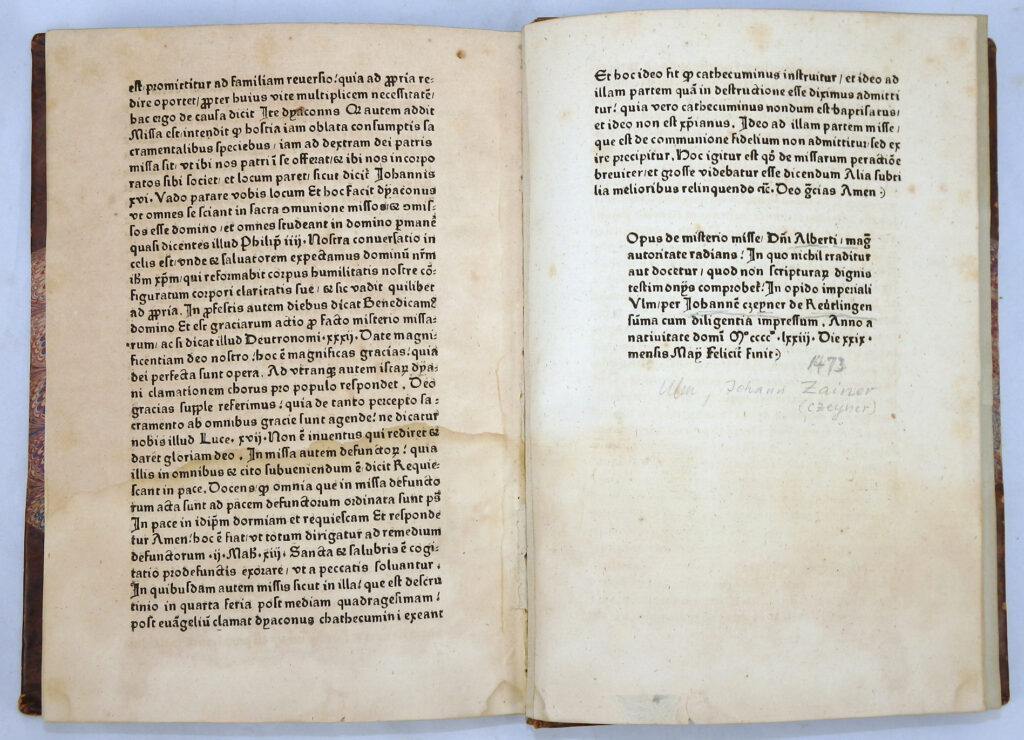 est promittitur ad familiam reuersio! quia ad ꝓpria re-
dire oportet/ ꝓpter huius vite multiplicem necessitatē/
hac ergo de causa dicit Ite dyaconus Q autem addit
Missa est/ intendit ꝙ hostia iam oblata consumptis sa
cramentalibus speciebus/ iam ad dextram dei patris
missa sit/ vt ibi nos patri ī se offerat/ & ibi nos incorpo
ratos sibi societ/ et locum paret/ sicut dicit Johannis
xvi. Vado parare vobis locum Et hoc facit dyaconus
vt omnes se sciant in sacra ꝯmunione missos/ & ꝯmis-
sos esse domino/ et omnes studeant in domino ꝑmanē
quasi dicentes illud Philip̄ iiij. Nostra conuersatio in
celis est/ vnde & saluatorem expectamus dominū nr̄m
ihm xp̄m/ qui reformabit corpus humilitatis nostre cō-
figuratum corpori claritatis sue/ & sic vadit quilibet
ad ꝓpria. In ꝓfestis autem diebus dicat Benedicamꝰ
domino Et est graciarum actio ꝓ facto misterio missa-
rum/ ac si dicat illud Deutronomi. xxxij. Date magni-
ficentiam deo nostro! hoc ē magnificas gracias! quia
dei perfecta sunt opera. Ad vtranqꝫ autem istaꝝ dya-
ni clamationem chorus pro populo respondet. Deo
gracias supple referimus! quia de tanto percepto sa-
cramento ab omnibus gracie sunt agende! ne dicatur
nobis illud Luce. xvij. Non ē inuentus qui rediret &
daret gloriam deo. In missa autem defunctoꝝ! quia
illis in omnibus & cito subueniendum ē dicit Requie-
scant in pace. Docens ꝙ omnia que in missa defuncto
rum acta sunt ad pacem defunctorum ordinata sunt ps̄
In pace in idip̄m dormiam et requiescam Et responde
tur Amen! hoc ē fiat/ vt totum dirigatur ad remedium
defunctorum. ij. Mach. xiij. Sancta & salubris ē cogi-
tatio pro defunctis exorare/ vt a peccatis soluantur.
In quibusdam autem missis sicut in illa! que est de scru
tinio in quarta feria post mediam quadragesimam!
post euāgeliū clamat dyaconus chathecumini exeant
Et hoc ideo fit ꝙ cathecuminus instruitur/ et ideo ad
illam partem quā in destructione esse diximus admitti
tur! quia vero cathecuminus nondum est baptisatus/
et ideo non est xp̄ianus. Ideo ad illam partem misse/
que est de communione fidelium non admittitur/ sed ex
ire precipitur. Hoc igitur est qd̄ de missarum peractiōe
breuiter/ et grosse videbatur esse dicendum Alia subti
lia melioribus relinquendo &c. Deo gr̄cias Amen :)
Opus de misterio misse/ Dn̄i Alberti/ maḡ
autoritate radians! In quo nichil traditur
aut docetur/ quod non scripturaꝝ dignis
testimonijs comprobet! In opido imperiali
Vlm/ per Johannē czeyner de Reutlingen
sūma cum diligentia impressum. Anno a
natiuitate domī Mº ccccº. lxxiij. Die xxix.
mensis Maij Felicit̄ finit :)
1473
Ulm, Johann Zainer
(czeyner)